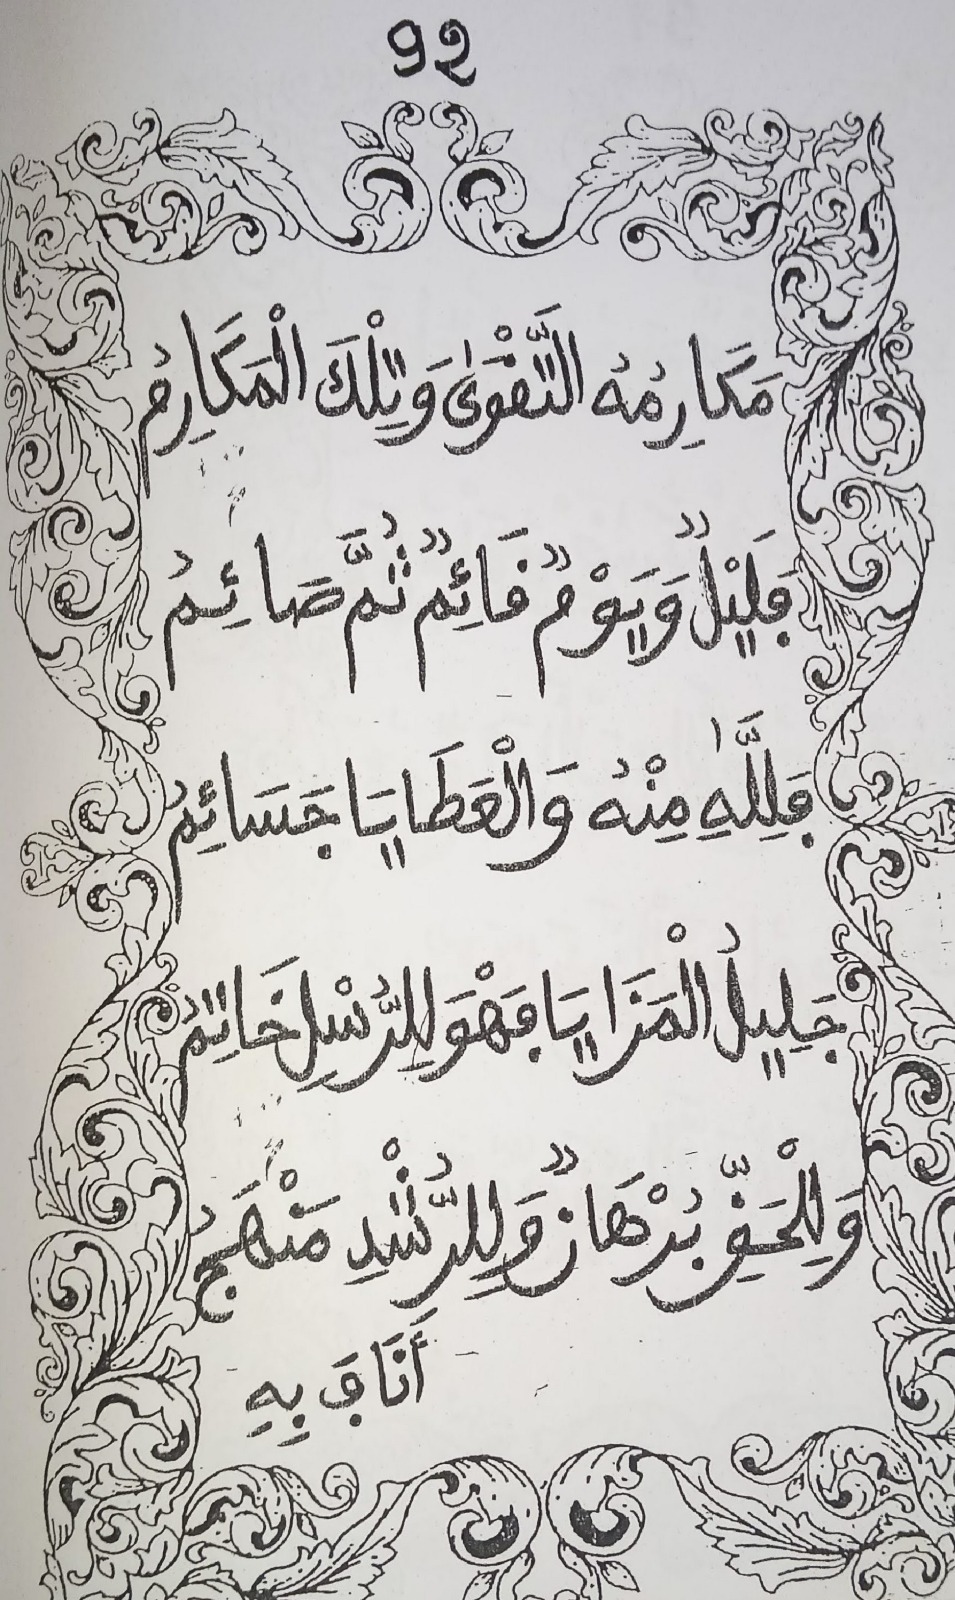 92
مَكَارِمُهُ التَّقْوَىٰ وَتِلْكَ الْمَكَارِمُ
فَلَيْلٌ وَيَوْمٌ قَائِمٌ ثُمَّ صَائِمُ
فَلِلَّهِ مِنْهُ وَالْعَطَايَا جَسَائِمُ
جَلِيلُ الْمَزَايَا فَهْوَ لِلرُّسْلِ خَاتِمُ
وَلِلْحَقِّ بُرْهَانٌ وَلِلرُّشْدِ مَنْهَجُ
أَنَافَ بِهِ